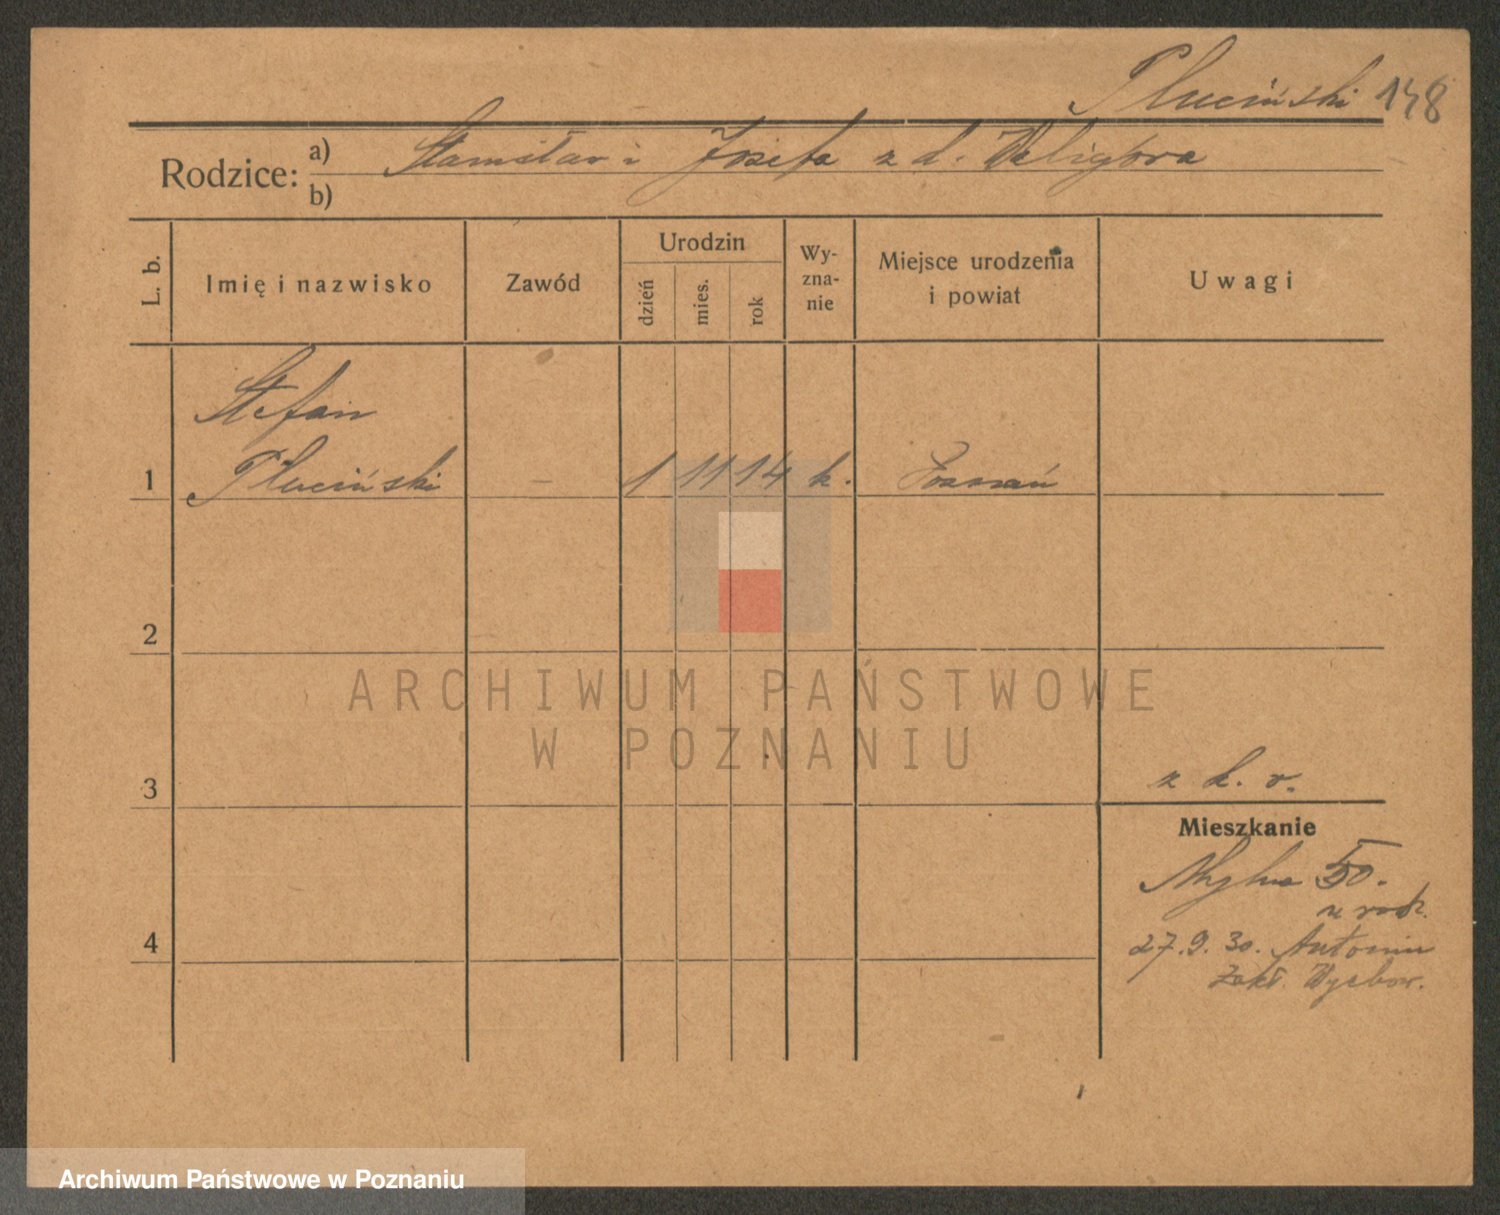 Pluciński 148
Rodzice: a) Stanisław i Józefa z d. Weligóra
b)
L. b. Imię i nazwisko Zawód Urodzin dzień mies. rok Wy-zna-nie Miejsce urodzenia i powiat Uwagi
Stefan
1 Pluciński - 1 11 14 k. Poznań
2
ARCHIWUM PAŃSTWOWE
W POZNANIU
z k. r.
3
Mieszkanie
50.
u rodz.
4 27.9.30. Antonin
Zakł. Wychow.
Archiwum Państwowe w Poznaniu